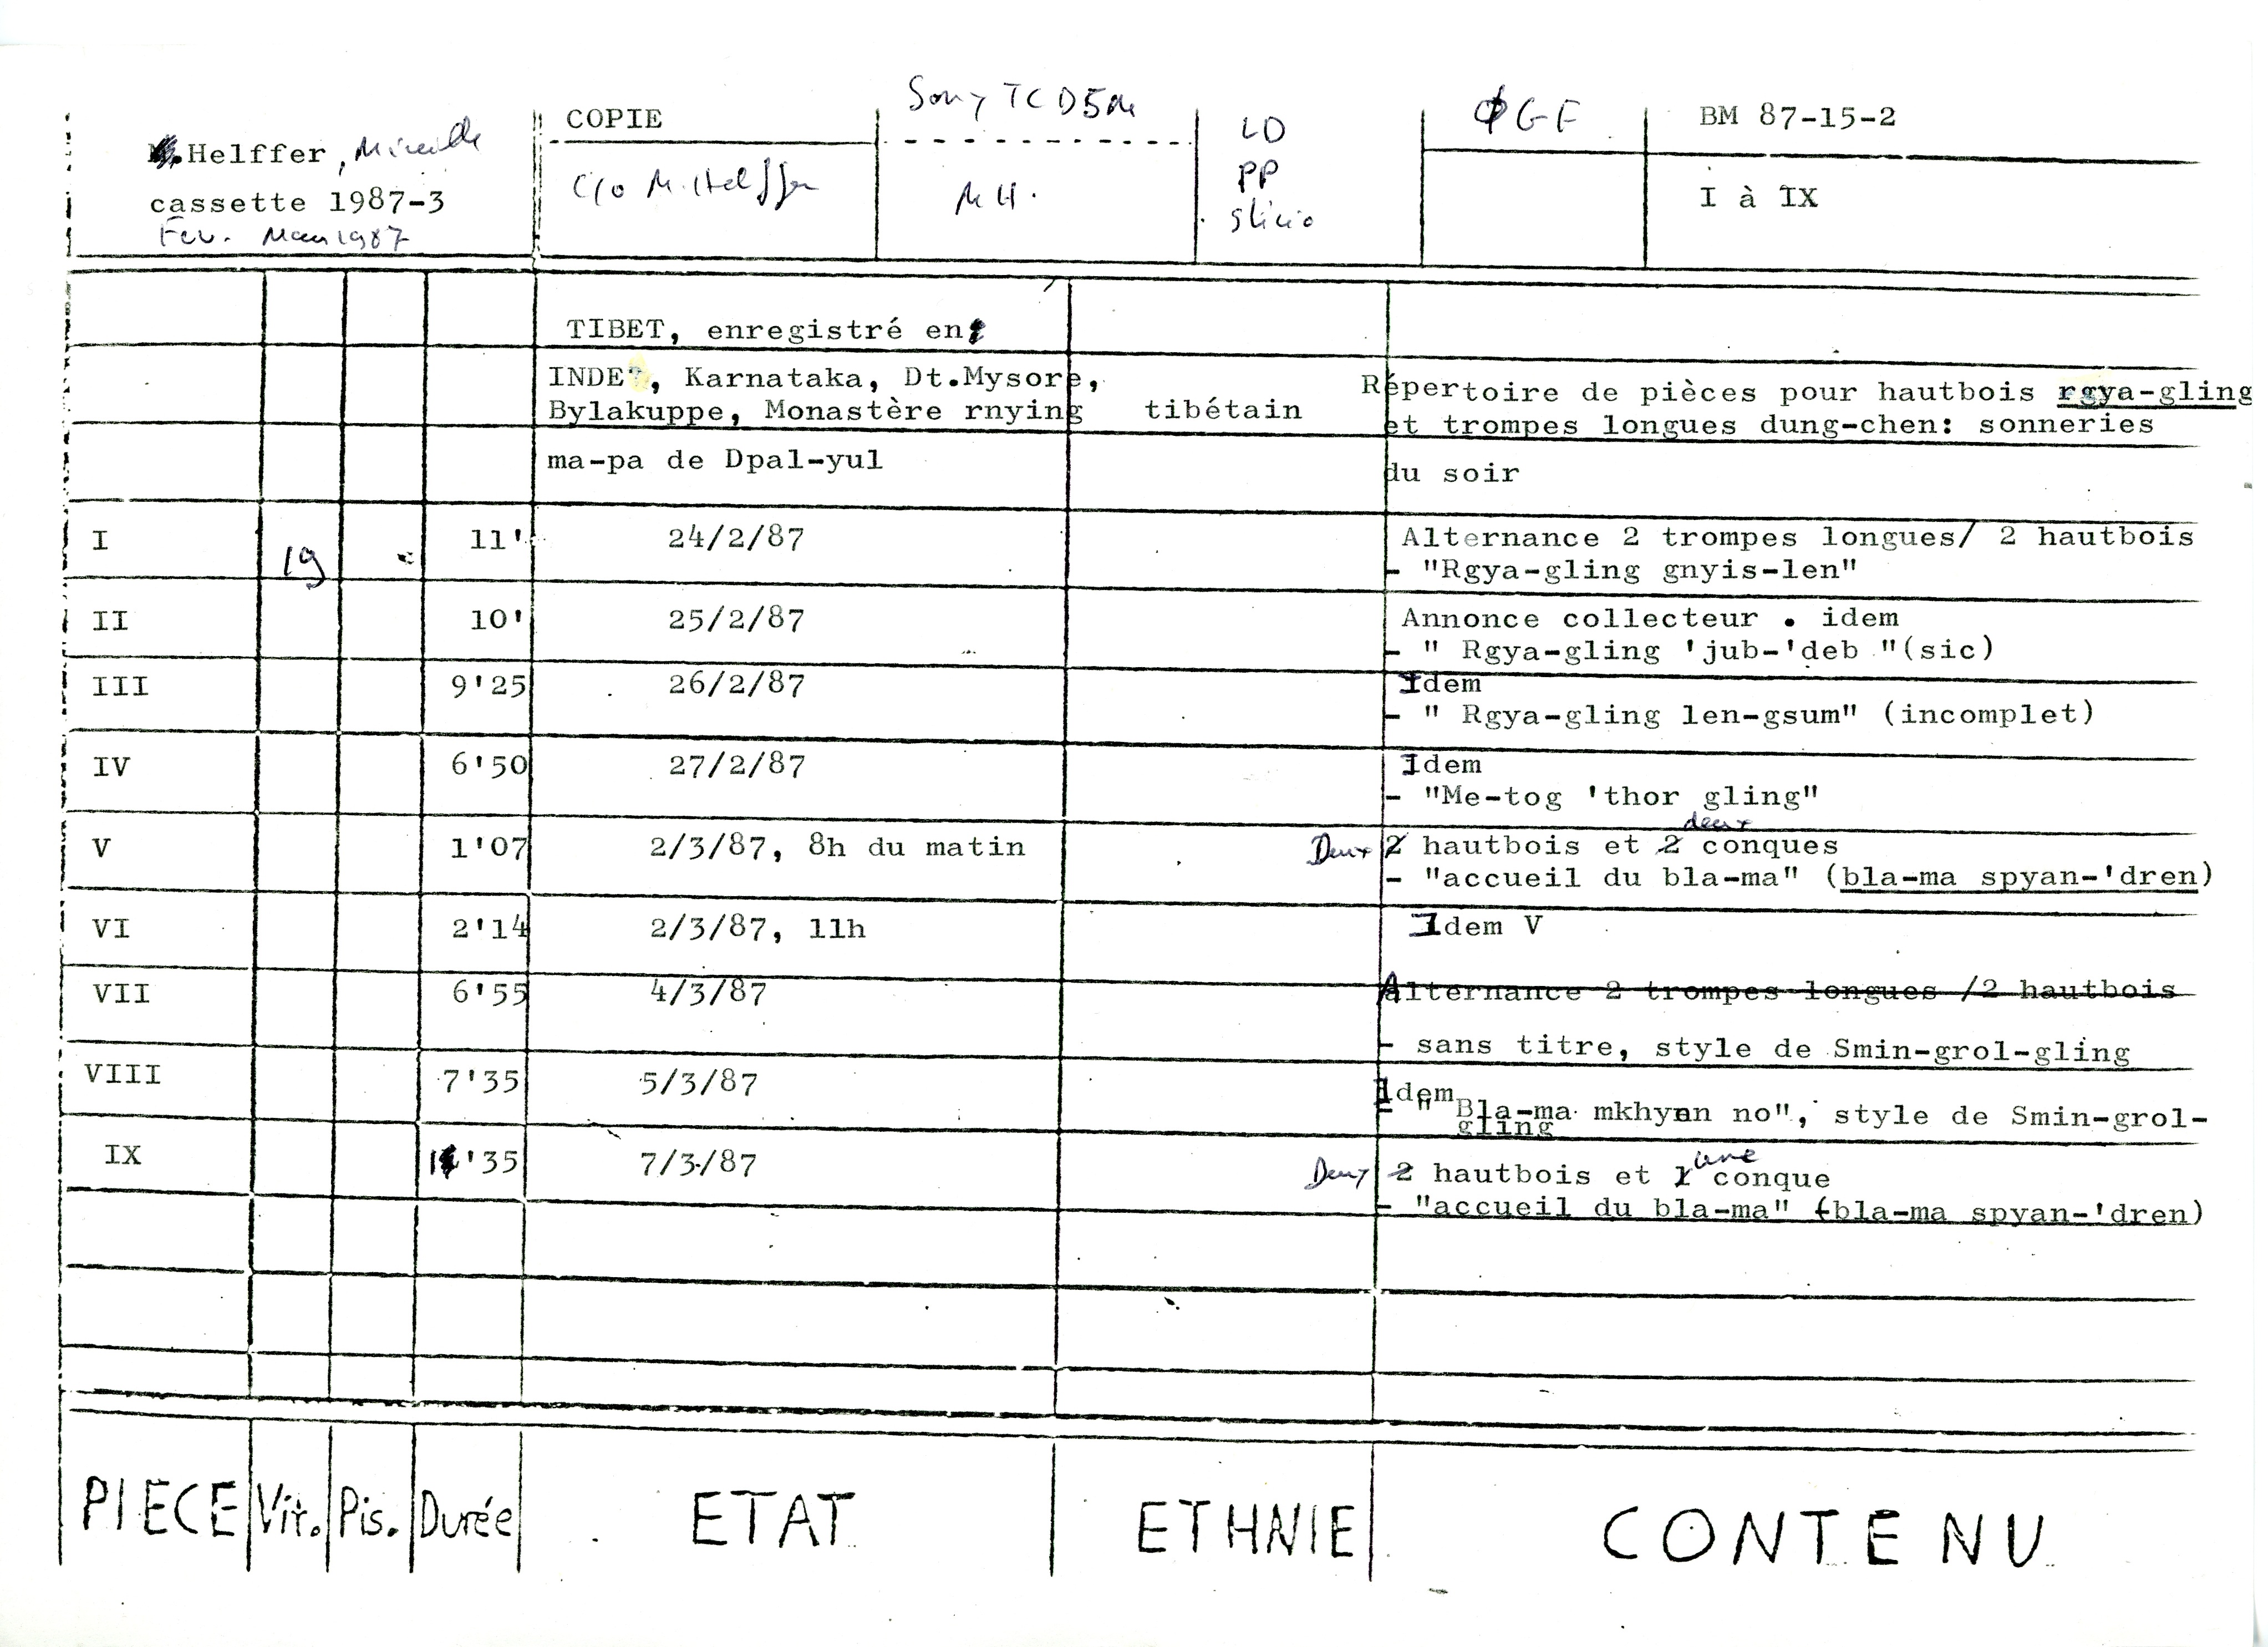 Helffer, Mireille
cassette 1987-3
Fev. Mars 1987
COPIE
C/o M. Helffer
Sony TC D5M
M H.
LD
PP
GF
BM 87-15-2
I à IX
TIBET, enregistré en
INDE, Karnataka, Dt.Mysore,
Bylakuppe, Monastère rnying
ma-pa de Dpal-yul
tibétain
Répertoire de pièces pour hautbois rgya-gling
et trompes longues dung-chen: sonneries
du soir
I 19 11' 24/2/87 Alternance 2 trompes longues/ 2 hautbois
- "Rgya-gling gnyis-len"
II 10' 25/2/87 Annonce collecteur . idem
- " Rgya-gling 'jub-'deb "(sic)
III 9'25 26/2/87 Idem
- " Rgya-gling len-gsum" (incomplet)
IV 6'50 27/2/87 Idem
- "Me-tog 'thor gling"
V 1'07 2/3/87, 8h du matin Deux 2 hautbois et 2 deux conques
- "accueil du bla-ma" (bla-ma spyan-'dren)
VI 2'14 2/3/87, 11h Idem V
VII 6'55 4/3/87 Alternance 2 trompes longues /2 hautbois
- sans titre, style de Smin-grol-gling
VIII 7'35 5/3/87 Idem
- " Bla-ma mkhyen no", style de Smin-grol-
gling
IX 1'35 7/3/87 Deux 2 hautbois et 1 une conque
- "accueil du bla-ma" (bla-ma spyan-'dren)
PIECE Vit. Pis. Durée ETAT ETHNIE CONTENU